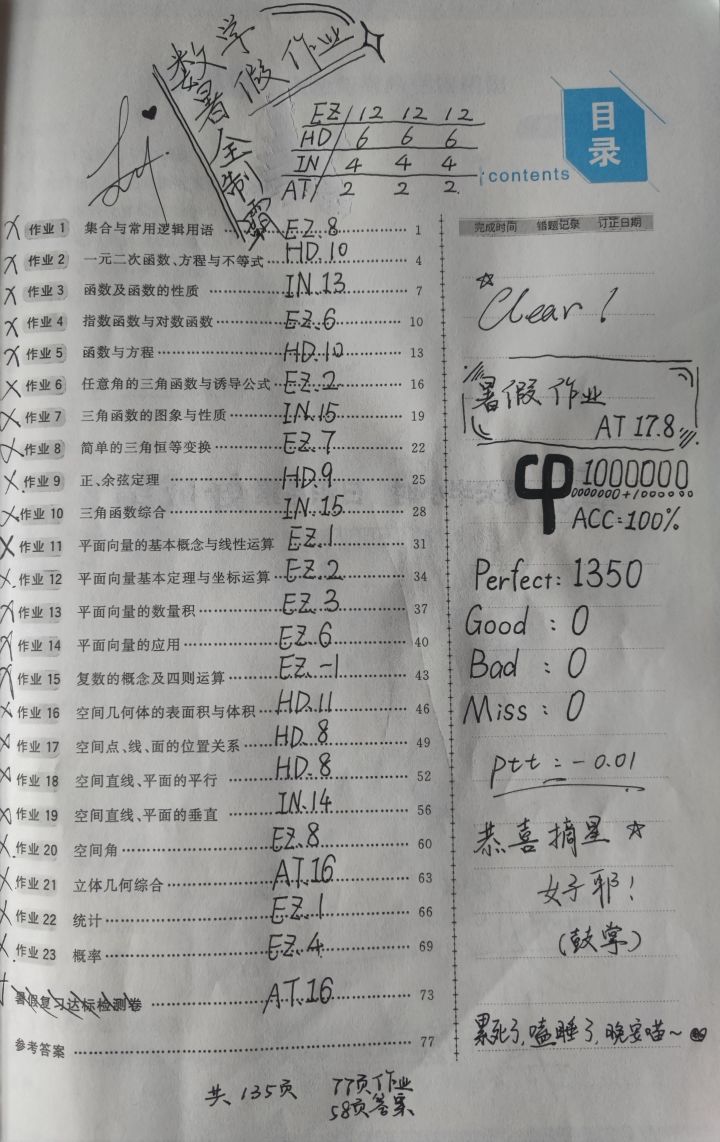 数学
暑假作业
全制霸
EZ 12 12 12
HD 6 6 6
IN 4 4 4
AT 2 2 2
目录
contents
作业1 集合与常用逻辑用语 EZ.8 1
作业2 一元二次函数、方程与不等式 HD.10 4
作业3 函数及函数的性质 IN.13 7
作业4 指数函数与对数函数 EZ.6 10
作业5 函数与方程 HD.10 13
作业6 任意角的三角函数与诱导公式 EZ.2 16
作业7 三角函数的图象与性质 IN.15 19
作业8 简单的三角恒等变换 EZ.7 22
作业9 正、余弦定理 HD.9 25
作业10 三角函数综合 IN.15 28
作业11 平面向量的基本概念与线性运算 EZ.1 31
作业12 平面向量基本定理与坐标运算 EZ.2 34
作业13 平面向量的数量积 EZ.3 37
作业14 平面向量的应用 EZ.6 40
作业15 复数的概念及四则运算 EZ.-1 43
作业16 空间几何体的表面积与体积 HD.11 46
作业17 空间点、线、面的位置关系 HD.8 49
作业18 空间直线、平面的平行 HD.8 52
作业19 空间直线、平面的垂直 IN.14 56
作业20 空间角 EZ.8 60
作业21 立体几何综合 AT.16 63
作业22 统计 EZ.1 66
作业23 概率 EZ.4 69
暑假复习达标检测卷 AT.16 73
参考答案 77
共135页
77页作业
58页答案
完成时间 错题记录 订正日期
Clear!
暑假作业
AT 17.8
φ 1000000
0000000+1000000
ACC:100%
Perfect: 1350
Good : 0
Bad : 0
Miss : 0
ptt = -0.01
恭喜摘星
好耶!
(鼓掌)
累死了,嗑睡了,晚安喵~